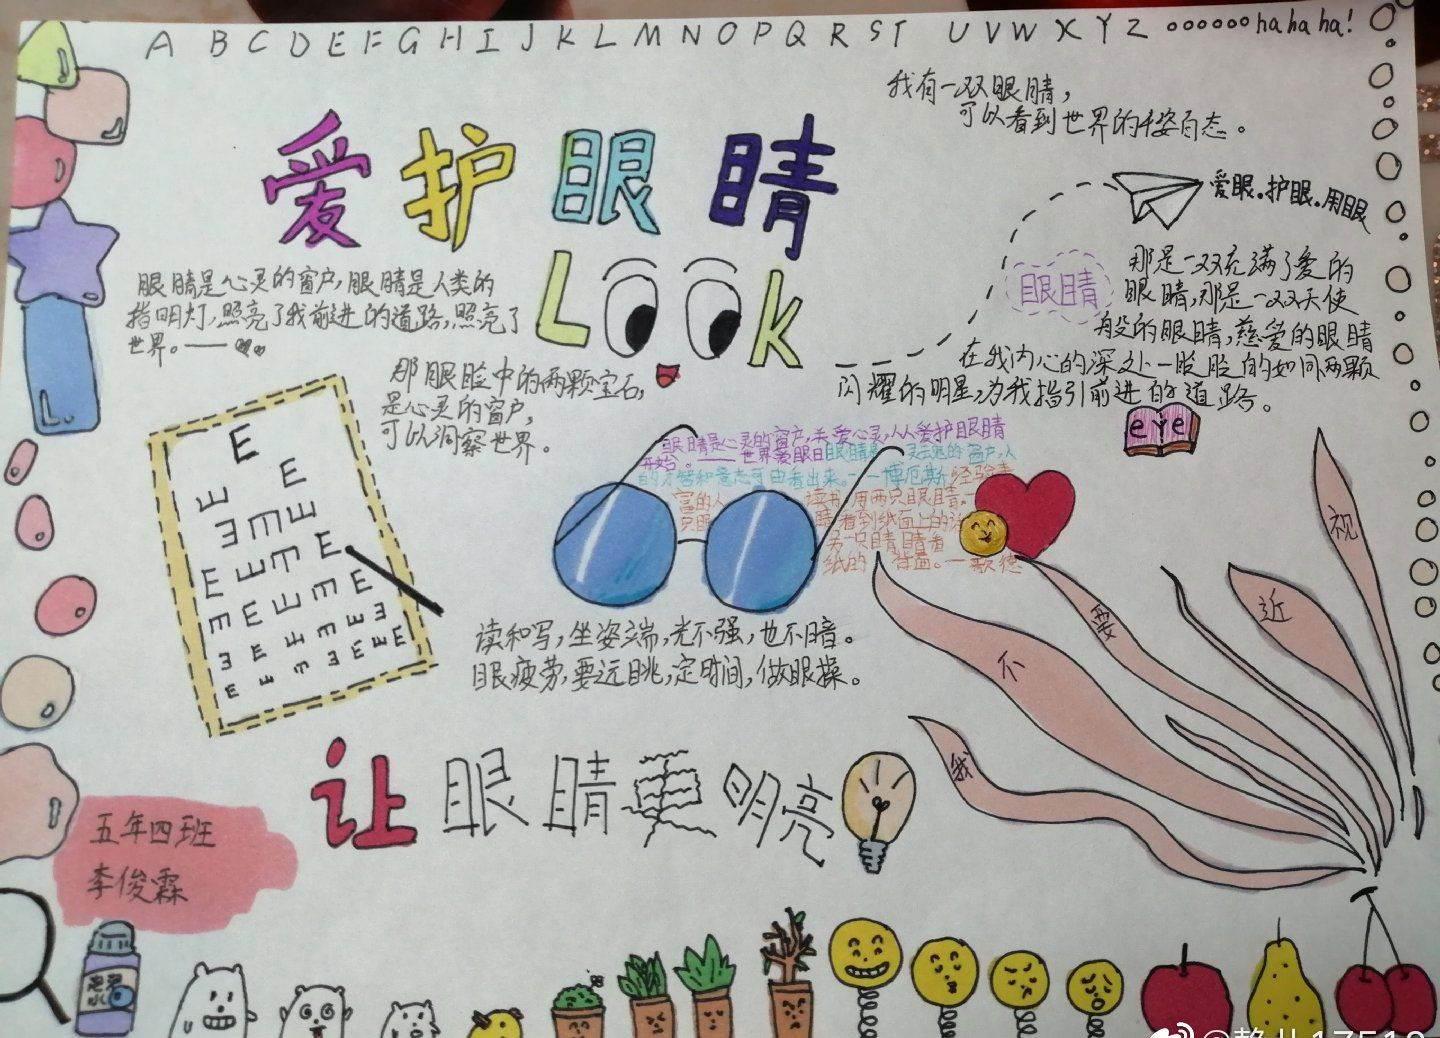 A B C D E F G H I J K L M N O P Q R S T U V W X Y Z oooooo ha ha ha!
我有一双眼睛，
可以看到世界的千姿百态。
爱护眼睛
Look
爱眼。护眼。用眼
眼睛
那是一双充满了爱的
眼睛，那是一双天使
般的眼睛，慈爱的眼睛
在我内心的深处一脸脸的如同两颗
闪耀的明星，为我指引前进的道路。
eye
眼睛是心灵的窗户，眼睛是人类的
指明灯，照亮了我前进的道路，照亮了
世界。——
那眼脸中的两颗宝石，
是心灵的窗户，
可以洞察世界。
眼睛是心灵的窗户，关爱心灵，从爱护眼睛
开始。——世界爱眼日
灵的窗户，人
的才智和意志可由看出来。——博厄斯
经验丰
富的人
读书用两只眼睛。一
只眼
睛看到纸面上的
另一只眼睛看
纸的背面。—歌德
E
E E
E E E
E E E E
E E E E E
E E E E E
E E E E E E
读和写，坐姿端，光不强，也不暗。
眼疲劳，要远眺，定时间，做眼操。
我
不
要
近
视
让眼睛更明亮
五年四班
李俊霖